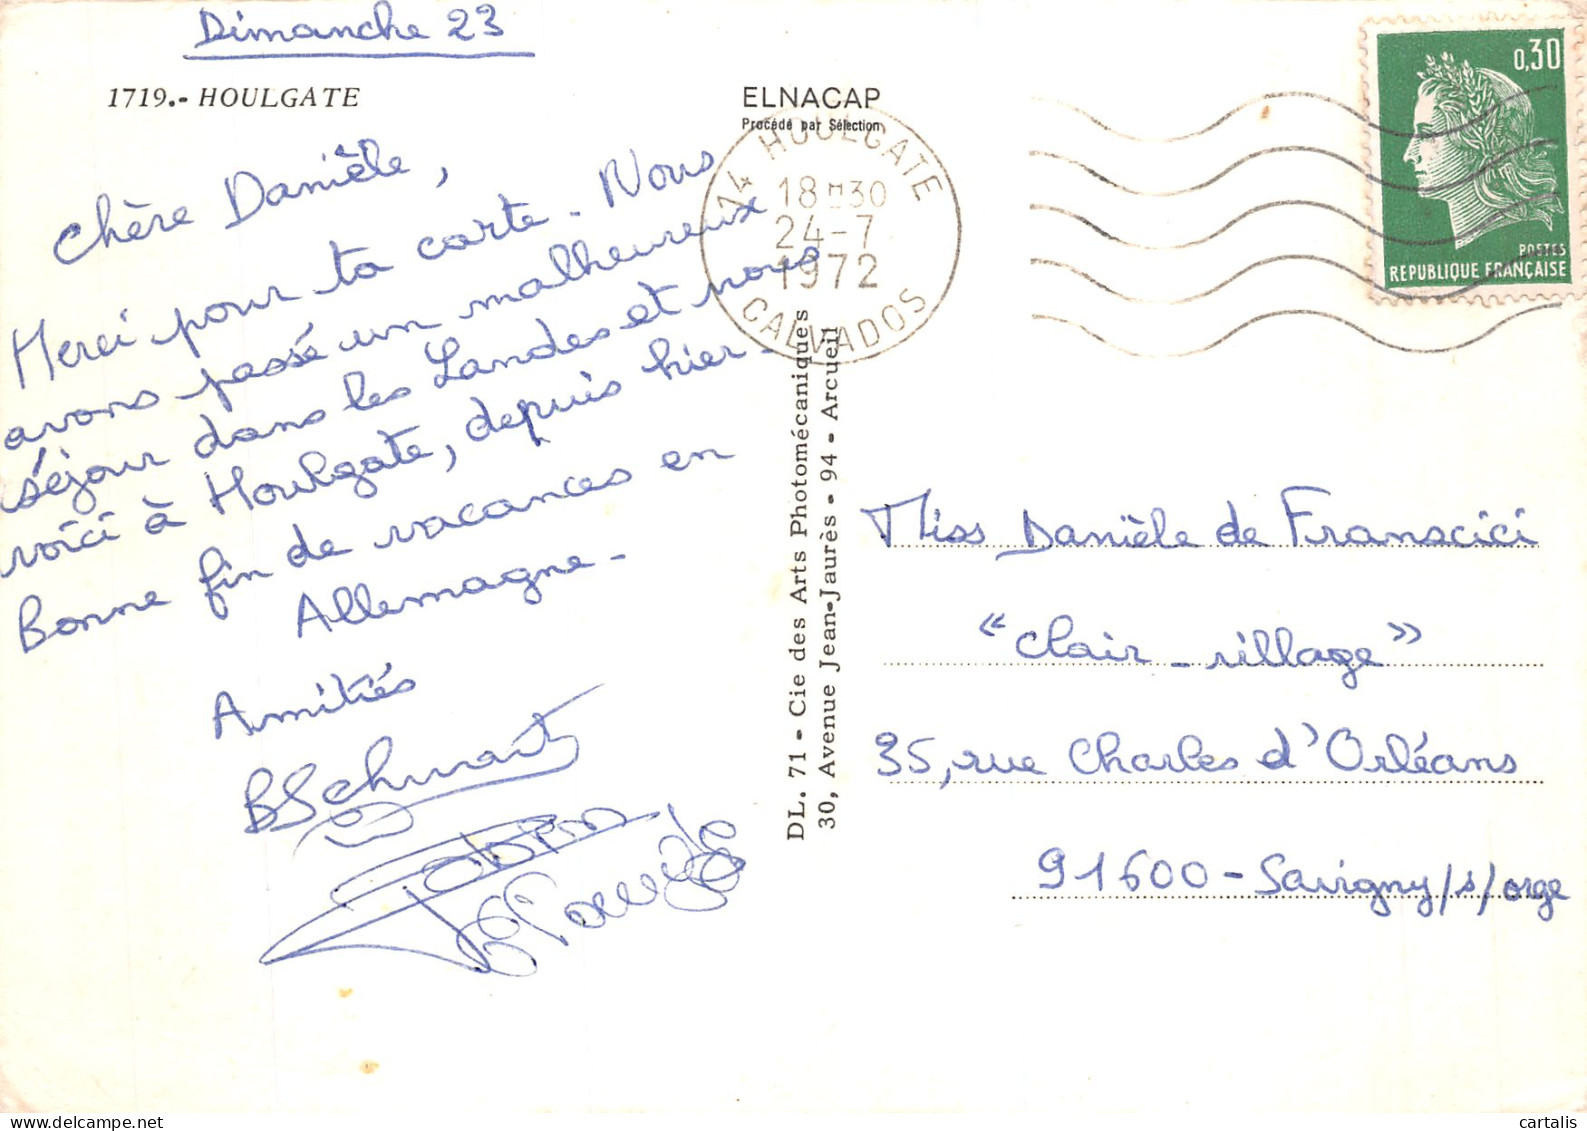 Dimanche 23
1719.- HOULGATE
ELNACAP
Procédé par Sélection
14 HOULGATE
18 H 30
24-7
1972
CALVADOS
0,30
POSTES
REPUBLIQUE FRANÇAISE
Chère Danièle,
Merci pour ta carte - Nous
avons passé un malheureux
séjour dans les Landes et nous
voici à Houlgate, depuis hier -
Bonne fin de vacances en
Allemagne -
Amitiés
DL. 71 - Cie des Arts Photomécaniques
30, Avenue Jean-Jaurès - 94 - Arcueil
Miss Danièle de Franscici
"Clair - village"
35, rue Charles d'Orléans
91600 - Savigny/s/orge
cartalis